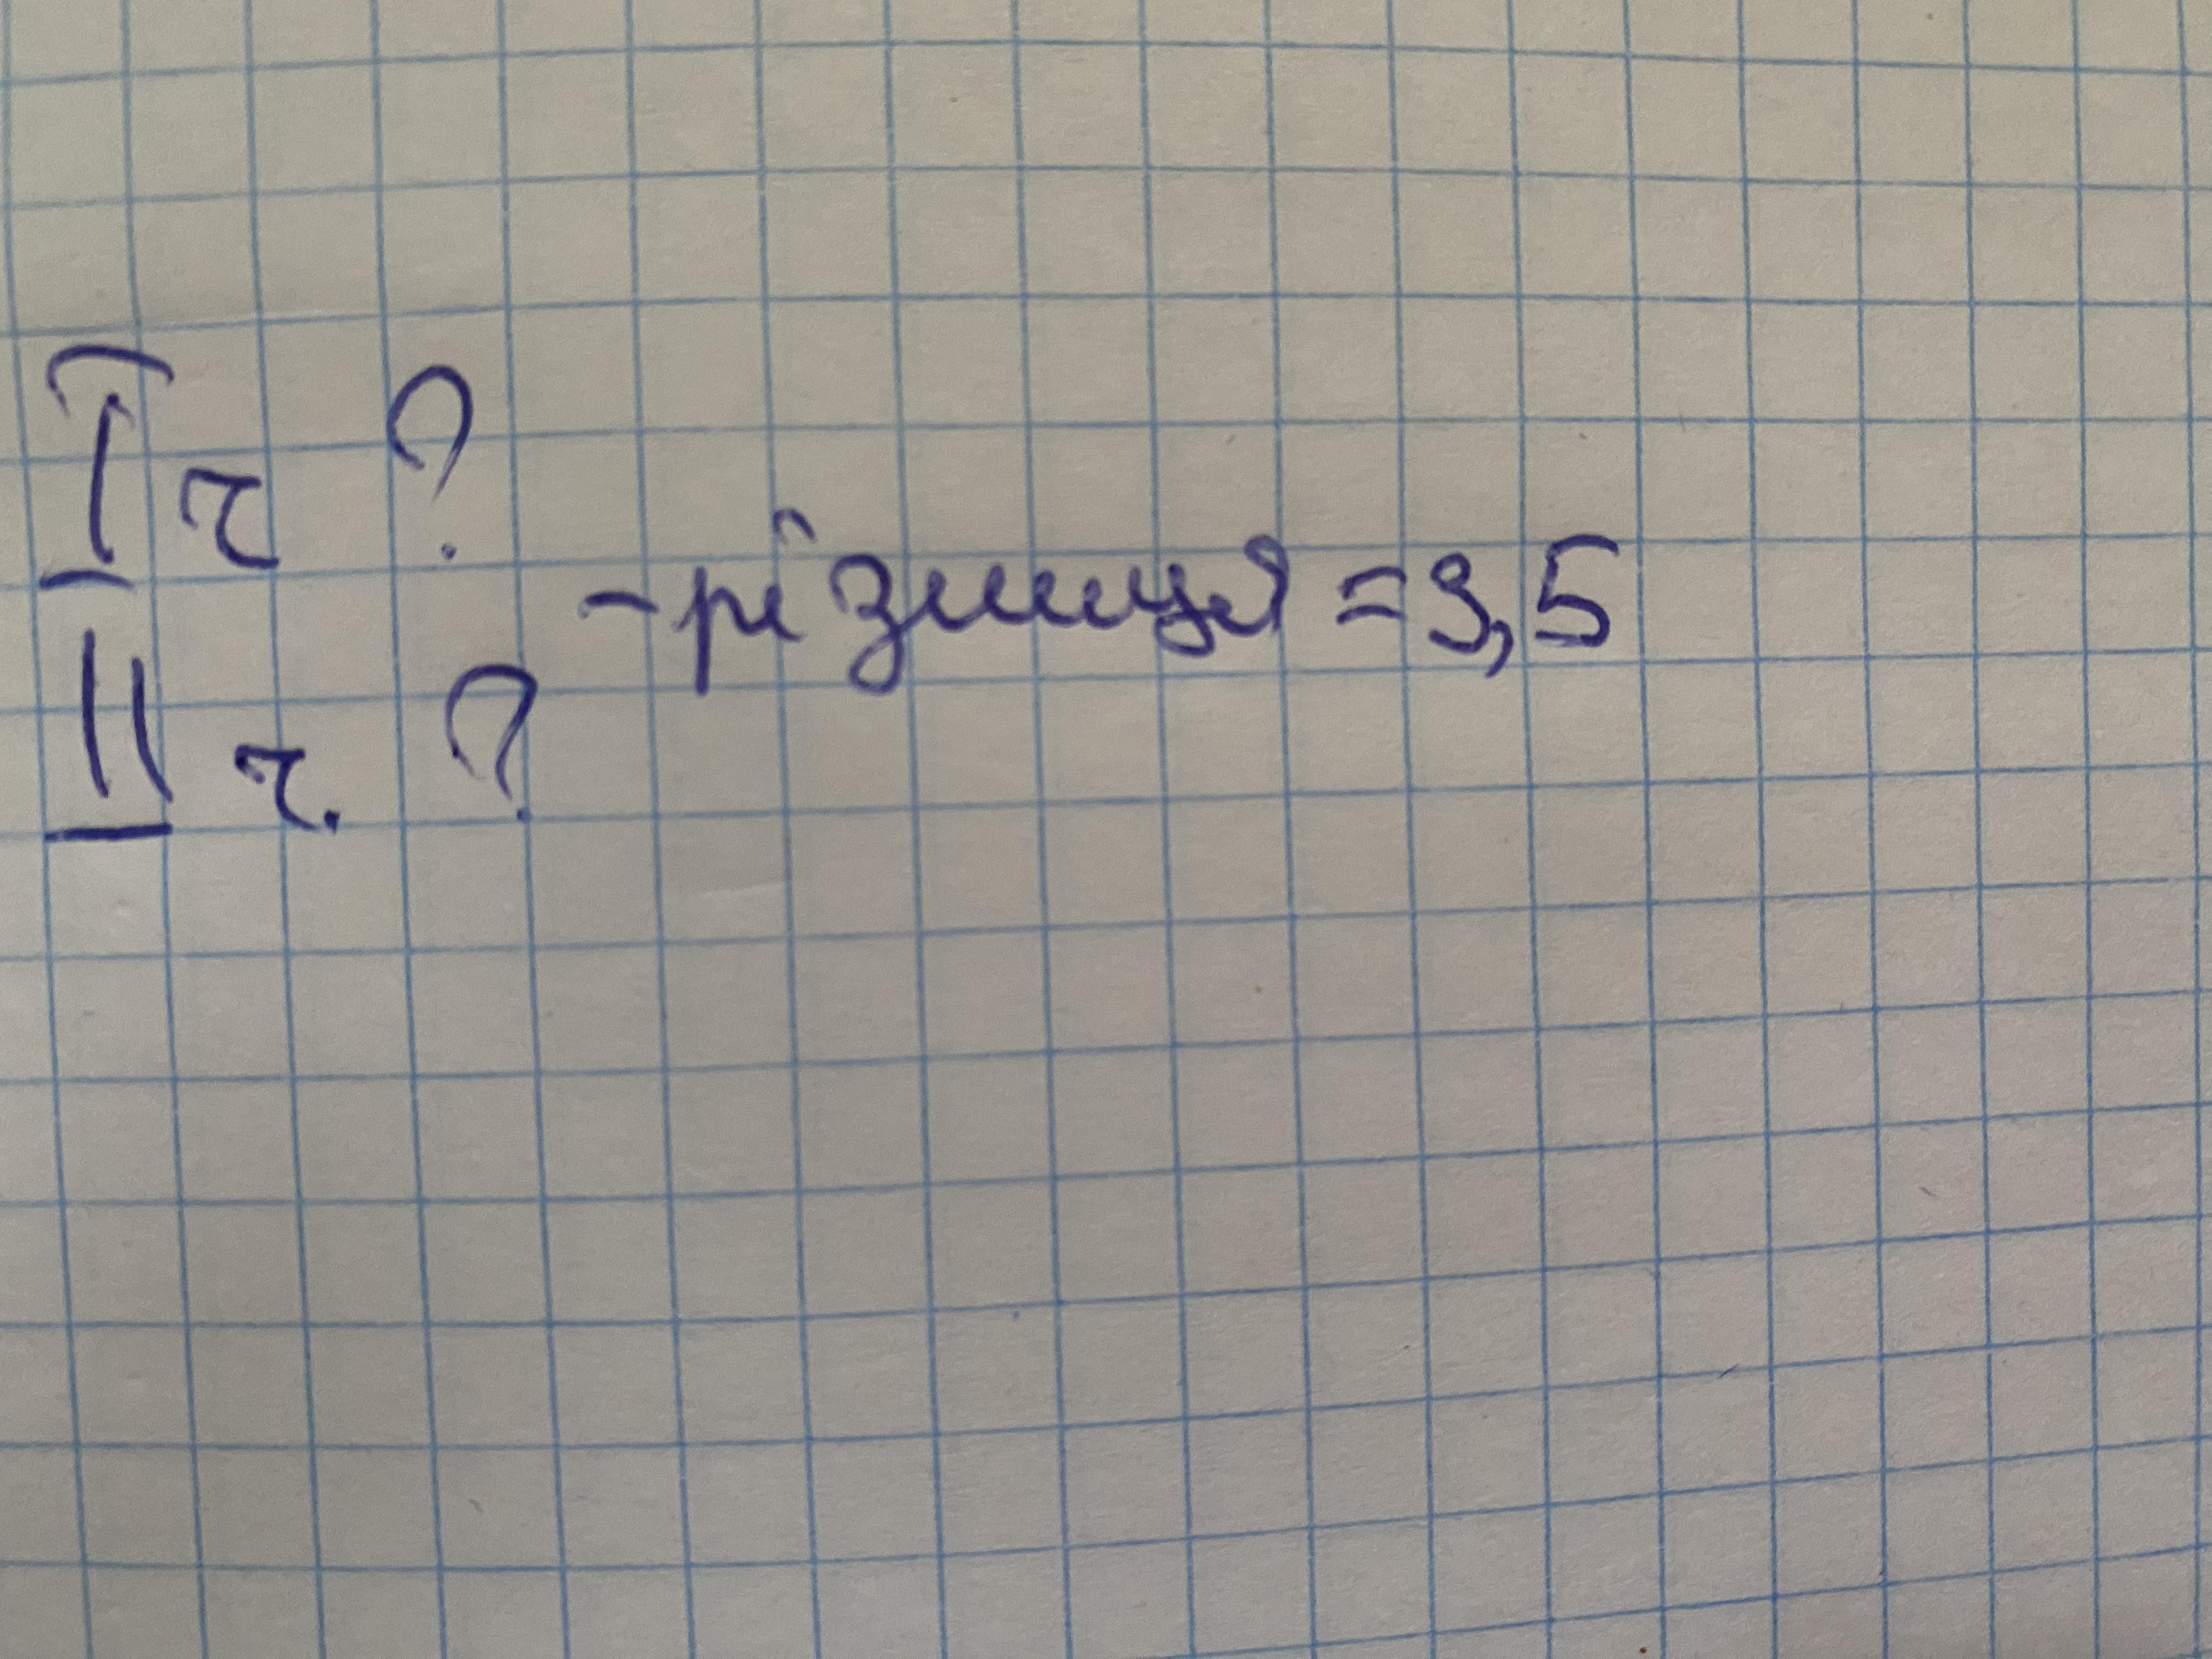 I ч ?
- різниця = 3,5
II ч. ?